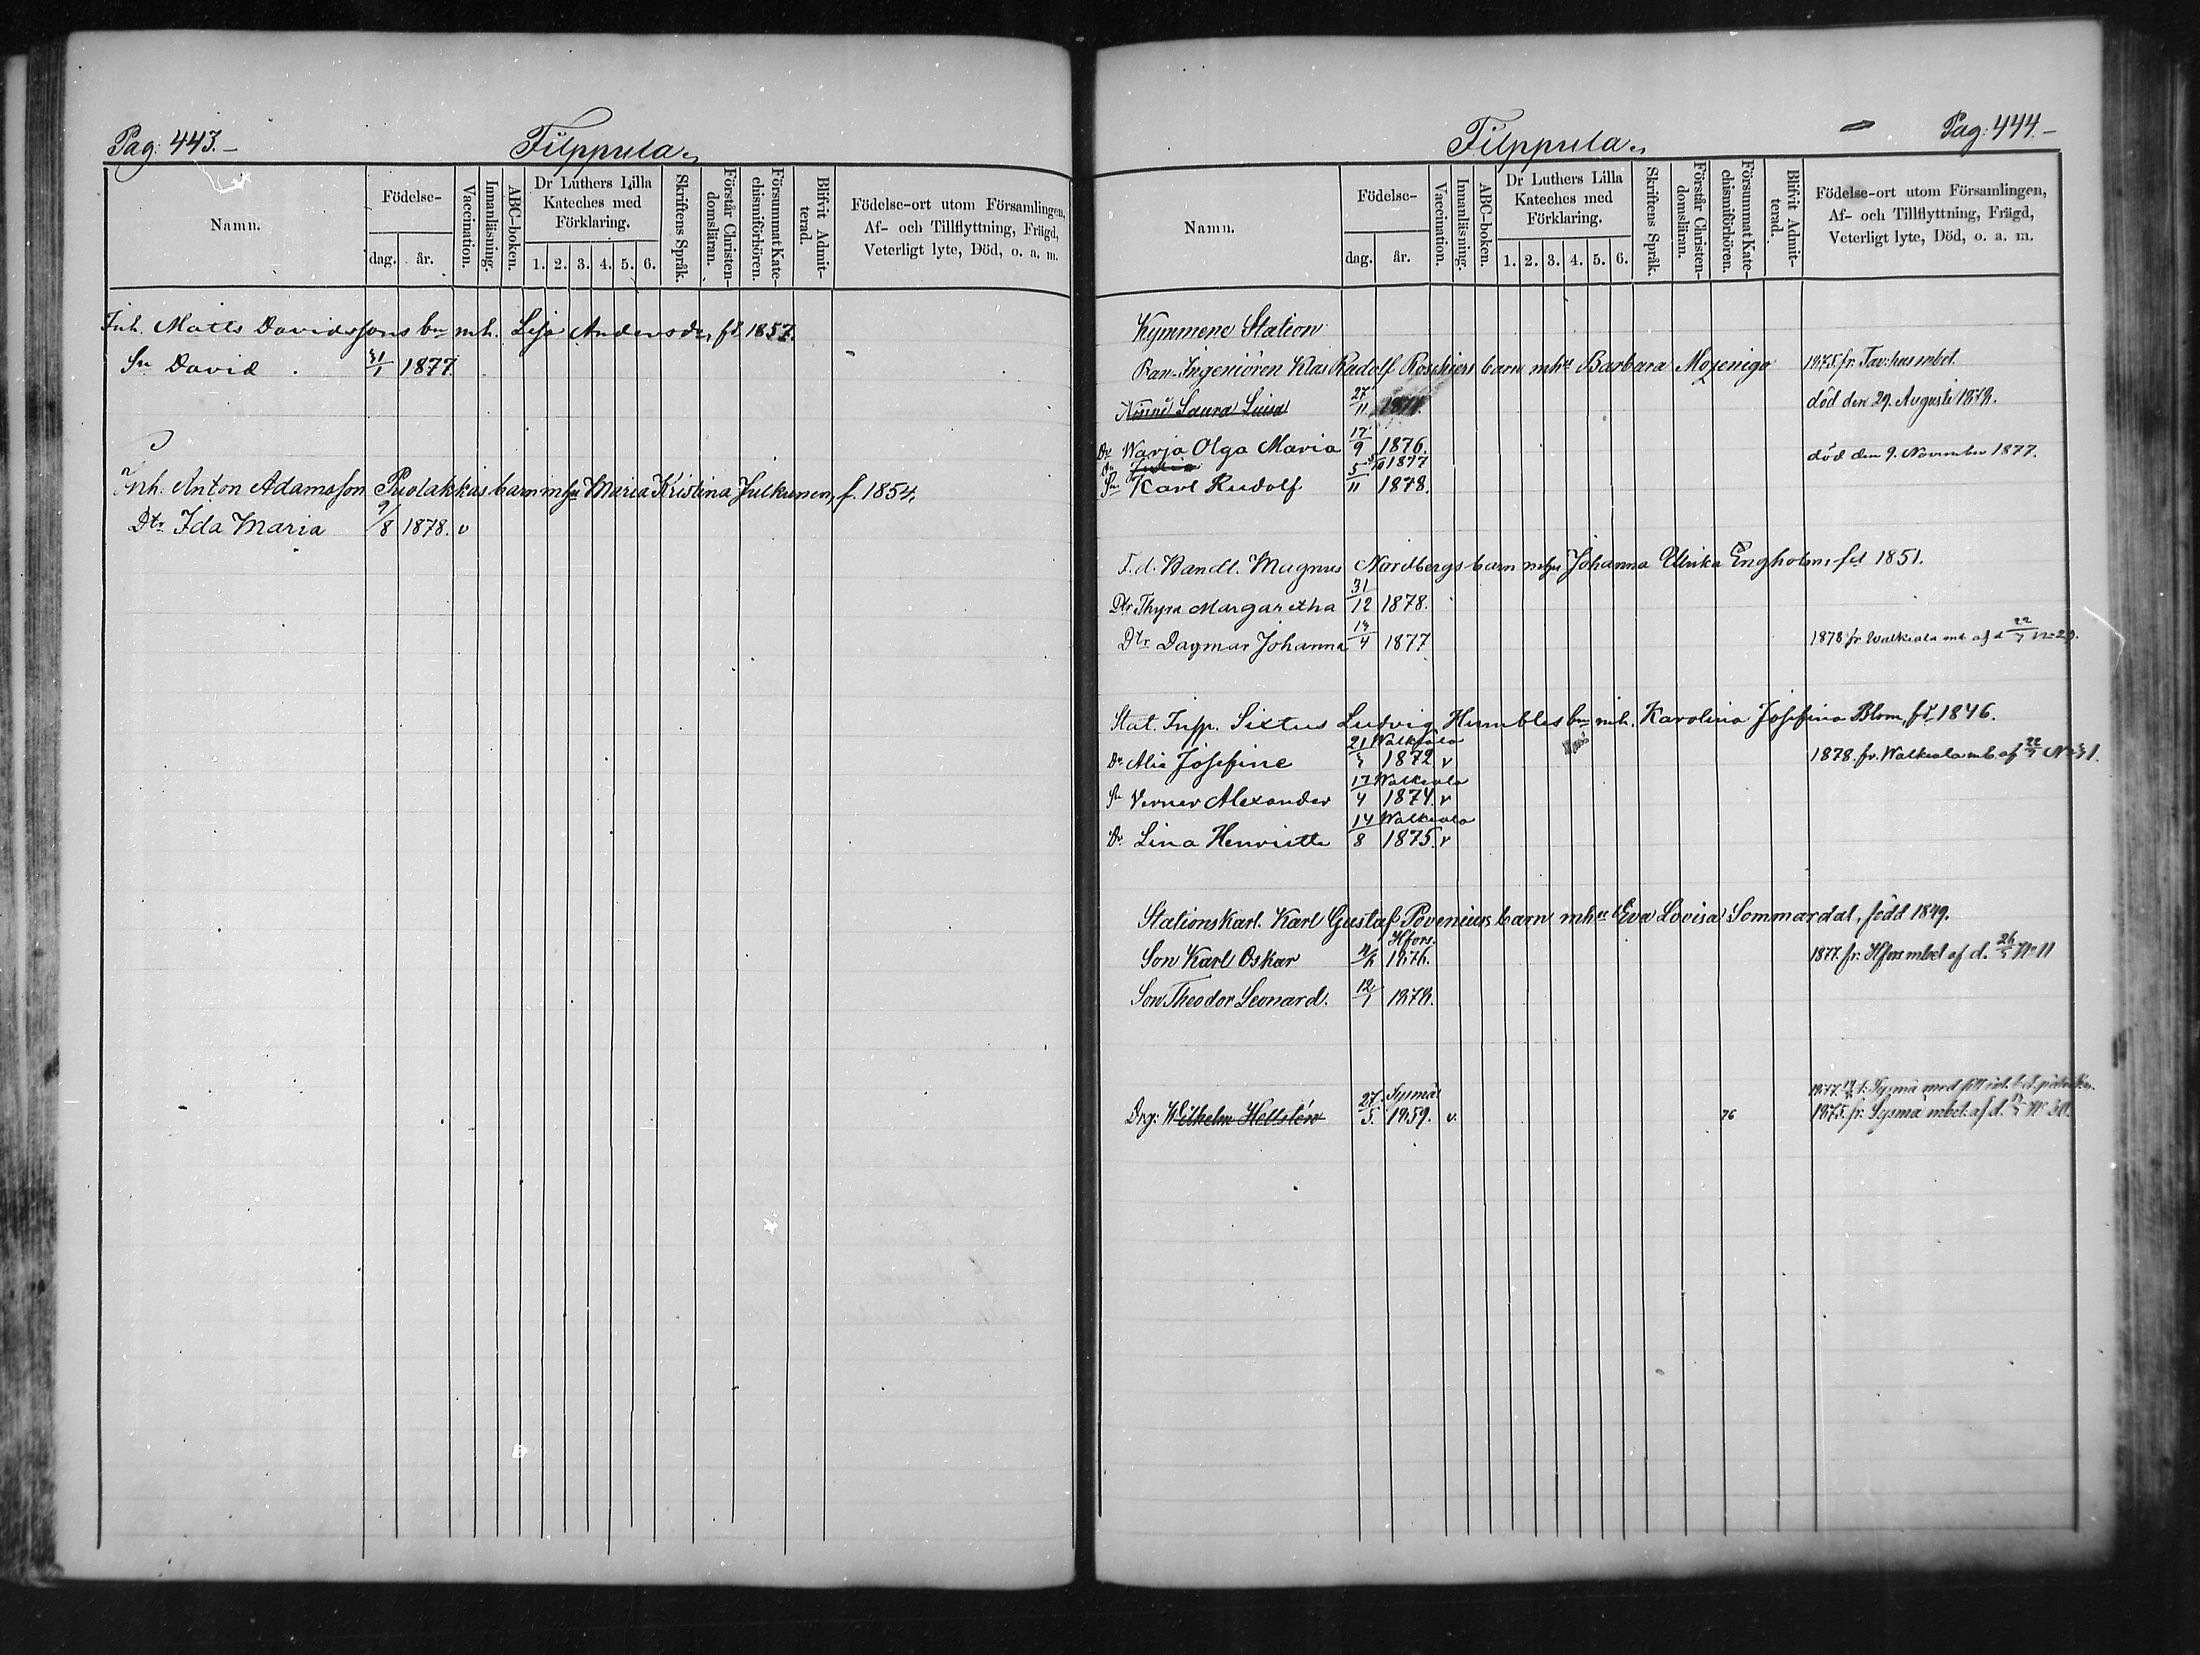 Pag: 443.
Filppula
Namn.
Födelse-
dag. år.
Vaccination.
Innanläsning.
ABC-boken.
Dr Luthers Lilla
Kateches med
Förklaring.
1. 2. 3. 4. 5. 6.
Skriftens Språk.
Förstår Christen-
domsläran.
Försummat Kate-
chismiförhören.
Blifvit Admit-
terad.
Födelse-ort utom Församlingen,
Af- och Tillflyttning, Frägd,
Veterligt lyte, Död, o. a. m.
Inh. Matts Davidssons bn mh. Lisa Andersdr, fd 1857.
Sn David 31/1 1877.
Inh. Anton Adamsson Puolakkas barn mhu Maria Kristina Julkunen, f. 1854.
Dtr Ida Maria 9/8 1878. v
Pag: 444.
Filppula
Namn.
Födelse-
dag. år.
Vaccination.
Innanläsning.
ABC-boken.
Dr Luthers Lilla
Kateches med
Förklaring.
1. 2. 3. 4. 5. 6.
Skriftens Språk.
Förstår Christen-
domsläran.
Försummat Kate-
chismiförhören.
Blifvit Admit-
terad.
Födelse-ort utom Församlingen,
Af- och Tillflyttning, Frägd,
Veterligt lyte, Död, o. a. m.
Kymmene Station
Ban-Ingeniören Klas Rudolf barn mhu Barbara Mozenigo 1875. fr. Tav:hus mbet.
Laura Luisa 27/11 död den 29. Augusti 1878.
Dr Warja Olga Maria 17/9 1876.
Dr Julia 5/10 1877 död den 9. November 1877.
Sn Karl Rudolf 5/11 1878.
T.d. Handl. Magnus Nordbergs barn mhu Johanna Ulrika Engholm, fd 1851.
Dtr Thyra Margaretha 31/12 1878.
Dtr Dagmar Johanna 13/4 1877 1878 fr Walkeala mb. af d 22/7 No 29.
Stat. Insp. Sixtus Ludvig Humbles bn mh. Karolina Josefina Blom, fd 1846.
Walkeala
Dr Josefine 21/3 1872 v 1878. fr. Walkeala mb. af 22/7 No 31.
Walkeala
Sn Verner Alexander 17/4 1874. v
Walkeala
Dr Lina Henriette 14/8 1875. v
Stationskarl. Karl Gustaf Povenius barn mhu Eva Lovisa Sommardal, född 1849.
Hfors.
Son Karl Oskar 1876. 1877. fr. Hfors mbet af d. 26/5 No 11
Son Theodor Leonard. 12/1 1878.
Sysmä
Drg: Wilhelm Hellstén 27/5. 1859. v. 76 1875. fr. Sysmä mbet. af d.